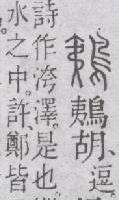 鴺鴺胡、逗。
詩作洿澤。是也
水之中。許、鄭皆